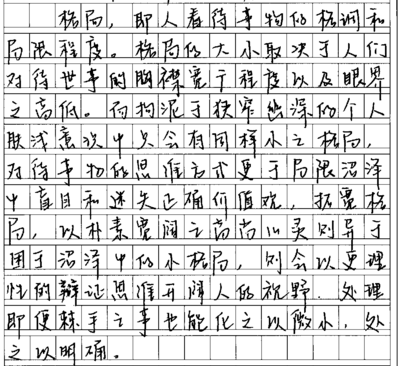 格局，即人看待事物的格调和
局限程度。格局的大小取决于人们
对待世事的胸襟宽于程度以及眼界
之高低。而拘泥于狭窄幽深的个人
肤浅意识中只会有同样小之格局，
对待事物的思维方式更于局限沼泽
中盲目和迷失正确价值观，拓宽格
局，以朴素宽阔之高尚心灵则异于
困于沼泽中的小格局，则会以更理
性的辩证思维开阔人的视野．处理
即便棘手之事也能化之以微小，处
之以明确。